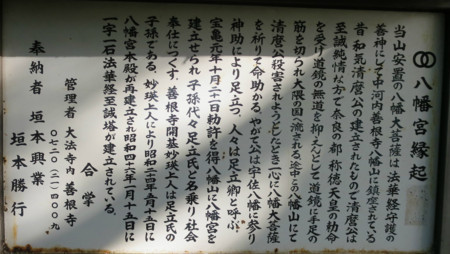 八幡宮縁起
当山安置の八幡大菩薩は、法華経守護の
善神にして中河内善根寺八幡山に鎮座されている
昔和気清麿公の建立されたもので清麿公は
至誠純情な方で奈良の都 称徳天皇の勅命
を受け道鏡の無道を抑えんとして道鏡に手足の
筋を切られ大隅の国へ流される途中この八幡山にて
清麿公殺害されようとしたとき一心に八幡大菩薩
を祈りて命助かる。やがて公は宇佐八幡に参り
神助により足立つ。人々は足立卿と呼ぶ。
宝亀元年十月二十日勅許を得、八幡山に八幡宮を
建立せられ子孫代々足立氏と名乗り社会
奉仕につくす。善根寺開基妙瑛上人は足立氏の
子孫である。妙瑛上人により昭和二四年四月十五日に
八幡宮本殿が再建立され昭和四六年一月十五日に
一字一石法華経至誠塔が建立されている。
合掌
管理者 大法寺内善根寺
〇七二〇(二一)四〇〇九
奉納者 垣本興業
垣本勝行